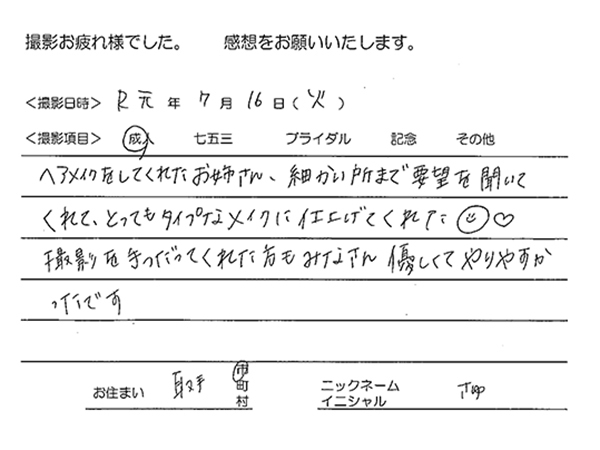 撮影お疲れ様でした。 感想をお願いいたします。
<撮影日時> R元年 7月 16日(火)
<撮影項目> 成人 七五三 ブライダル 記念 その他
ヘアメイクをしてくれたお姉さん、細かい所まで要望を聞いて
くれて、とってもタイプなメイクに仕上げてくれた☺♡
撮影を手つだってくれた方もみなさん優しくてやりやすか
ったです
お住まい 取手 市町村
ニックネーム イニシャル さゆ